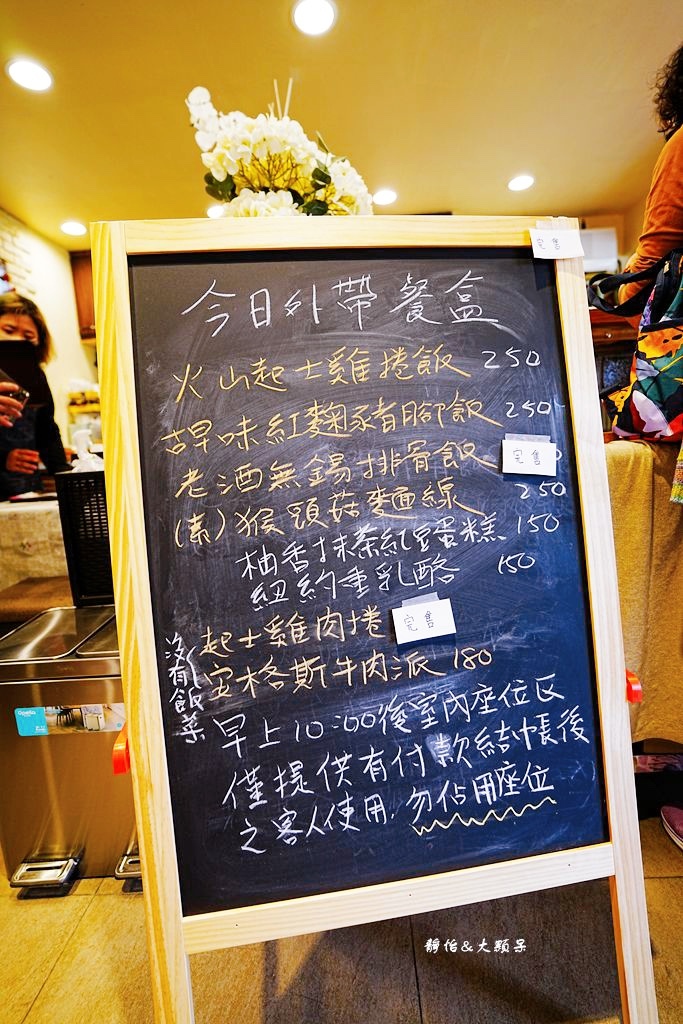 完售
今日外帶餐盒
火山起士雞捲飯 250
古早味紅麴豬腳飯 250
老酒無錫排骨飯 完售
(素)猴頭菇麵線 250
柚香抹茶紅豆蛋糕 150
紐約重乳酪 150
起士雞肉捲 完售
安格斯牛肉派 180
沒有飯菜
早上10:00後室內座位區
僅提供有付款結帳後
之客人使用.勿佔用座位
靜怡&大顆呆